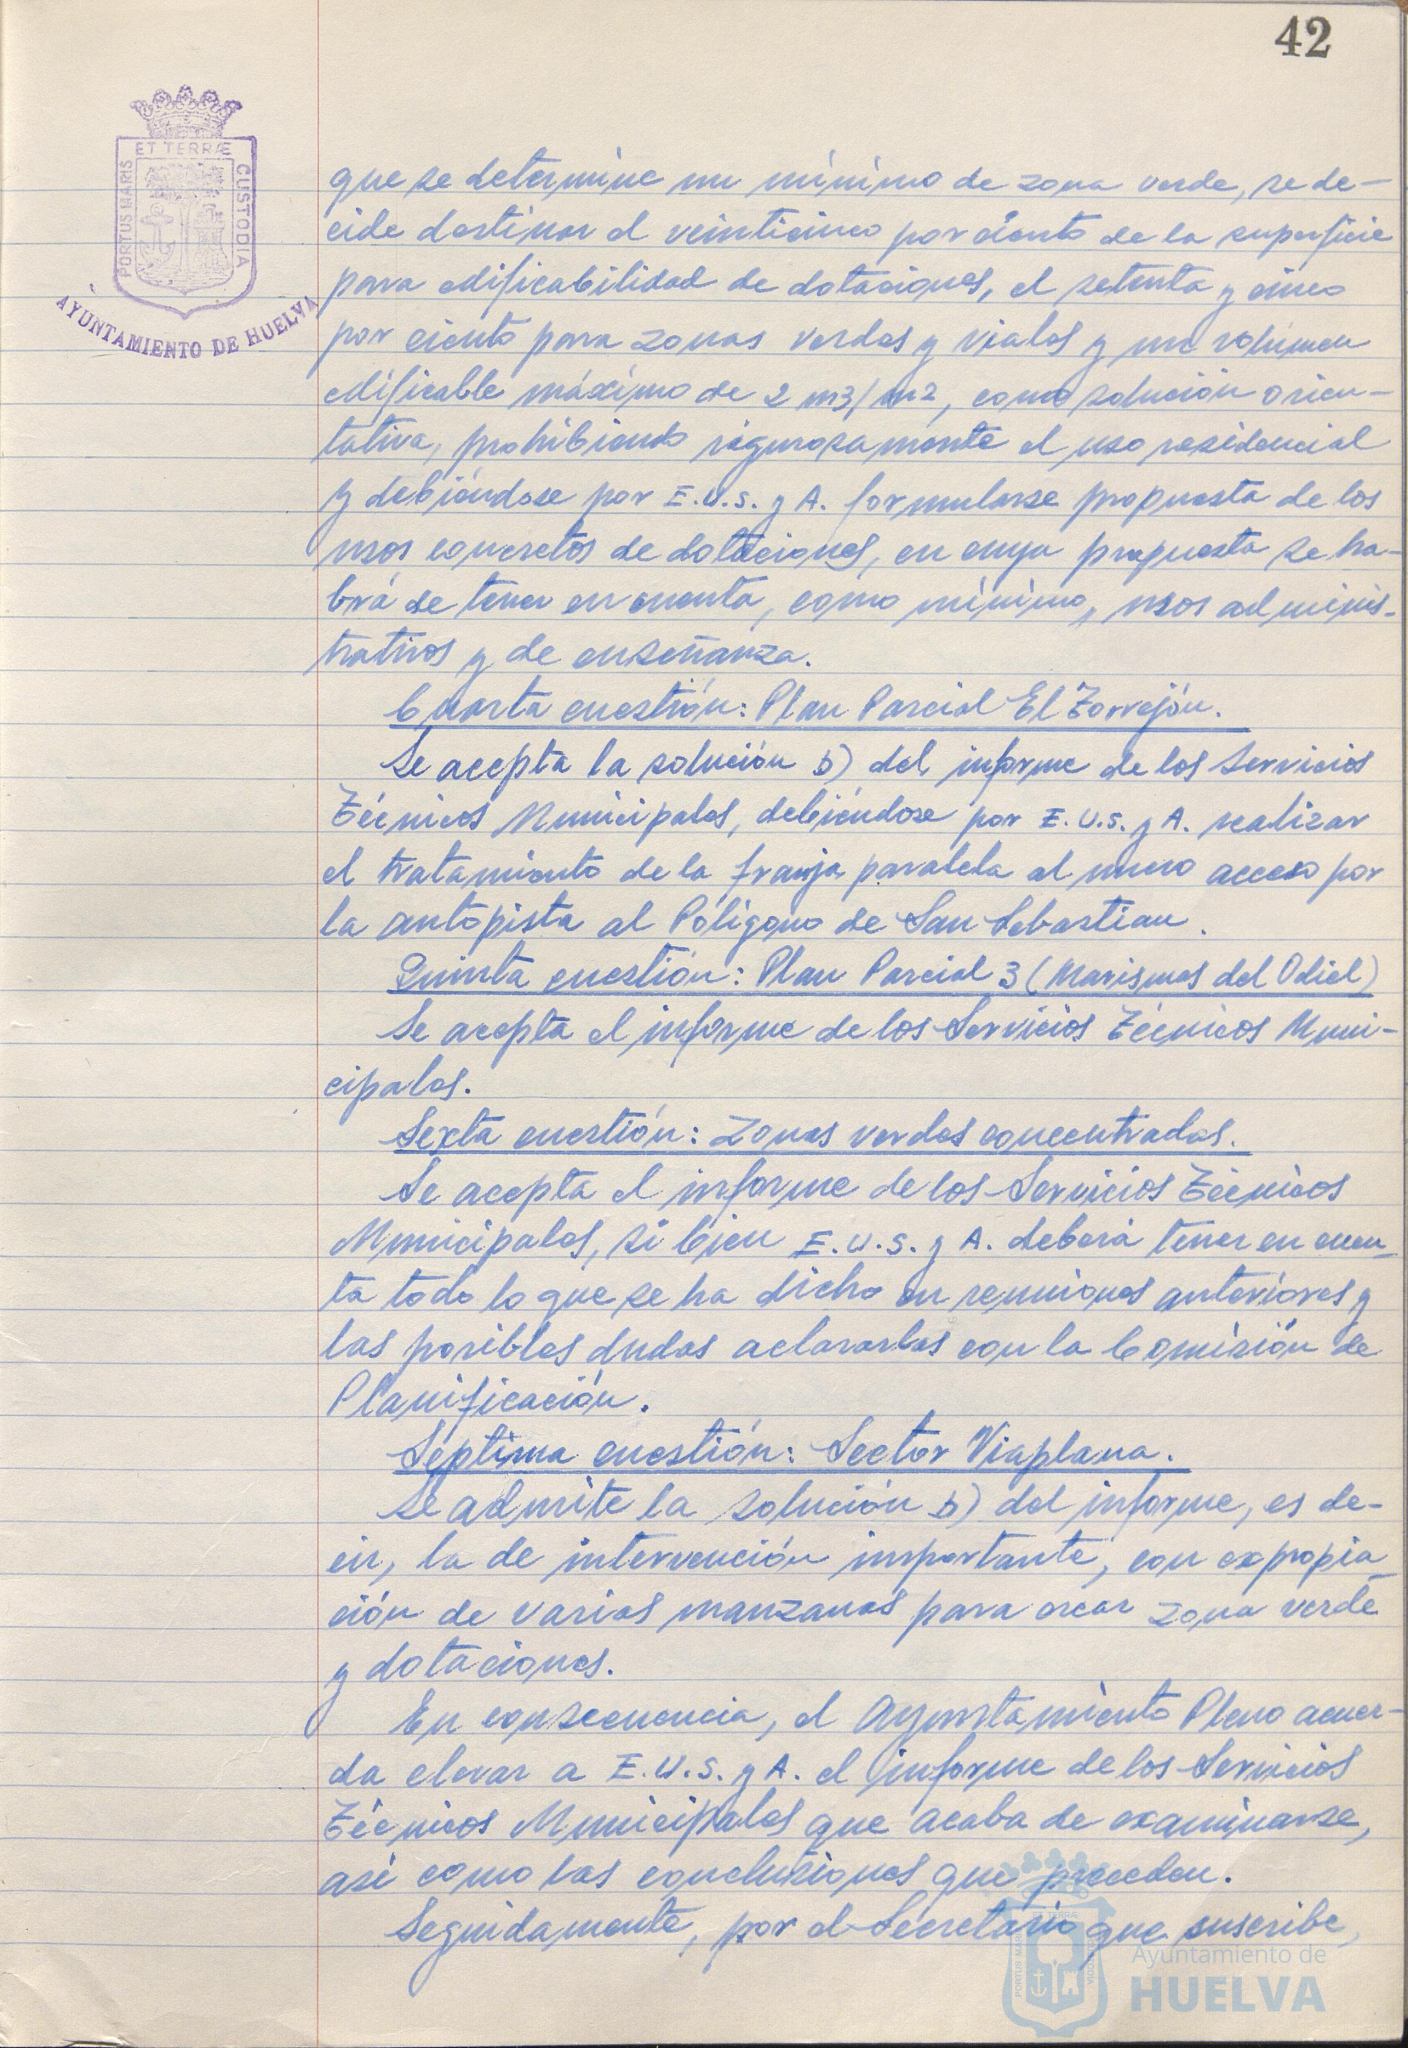 42
ET TERRÆ
PORTUS MARIS
CUSTODIA
AYUNTAMIENTO DE HUELVA
que se determine un mínimo de zona verde, se de-
cide destinar el veinticinco por ciento de la superficie
para edificabilidad de dotaciones, el setenta y cinco
por ciento para zonas verdes y viales y un volúmen
edificable máximo de 2 m3/m2, como solución orien-
tativa, prohibiendo rigurosamente el uso residencial
y debiéndose por E.U.S. y A. formularse propuesta de los
usos concretos de dotaciones, en cuya propuesta se ha-
brá de tener en cuenta, como mínimo, usos adminis-
trativos y de enseñanza.
Cuarta cuestión: Plan Parcial El Torrejón.
Se acepta la solución b) del informe de los Servicios
Técnicos Municipales, debiéndose por E.U.S. y A. realizar
el tratamiento de la franja paralela al nuevo acceso por
la autopista al Polígono de San Sebastian.
Quinta cuestión: Plan Parcial 3 (Marismas del Odiel)
Se acepta el informe de los Servicios Técnicos Muni-
cipales.
Sexta cuestión: Zonas verdes concentradas.
Se acepta el informe de los Servicios Técnicos
Municipales, si bien E.U.S. y A. deberá tener en cuen-
ta todo lo que se ha dicho en reuniones anteriores y
las posibles dudas aclararlas con la Comisión de
Planificación.
Séptima cuestión: Sector Viaplana.
Se admite la solución b) del informe, es de-
cir, la de intervención importante, con expropia-
ción de varias manzanas para crear zona verde
y dotaciones.
En consecuencia, el Ayuntamiento Pleno acuer-
da elevar a E.U.S. y A. el informe de los Servicios
Técnicos Municipales que acaba de examinarse,
asi como las conclusiones que preceden.
Seguidamente, por el Secretario que suscribe,
Ayuntamiento de
HUELVA